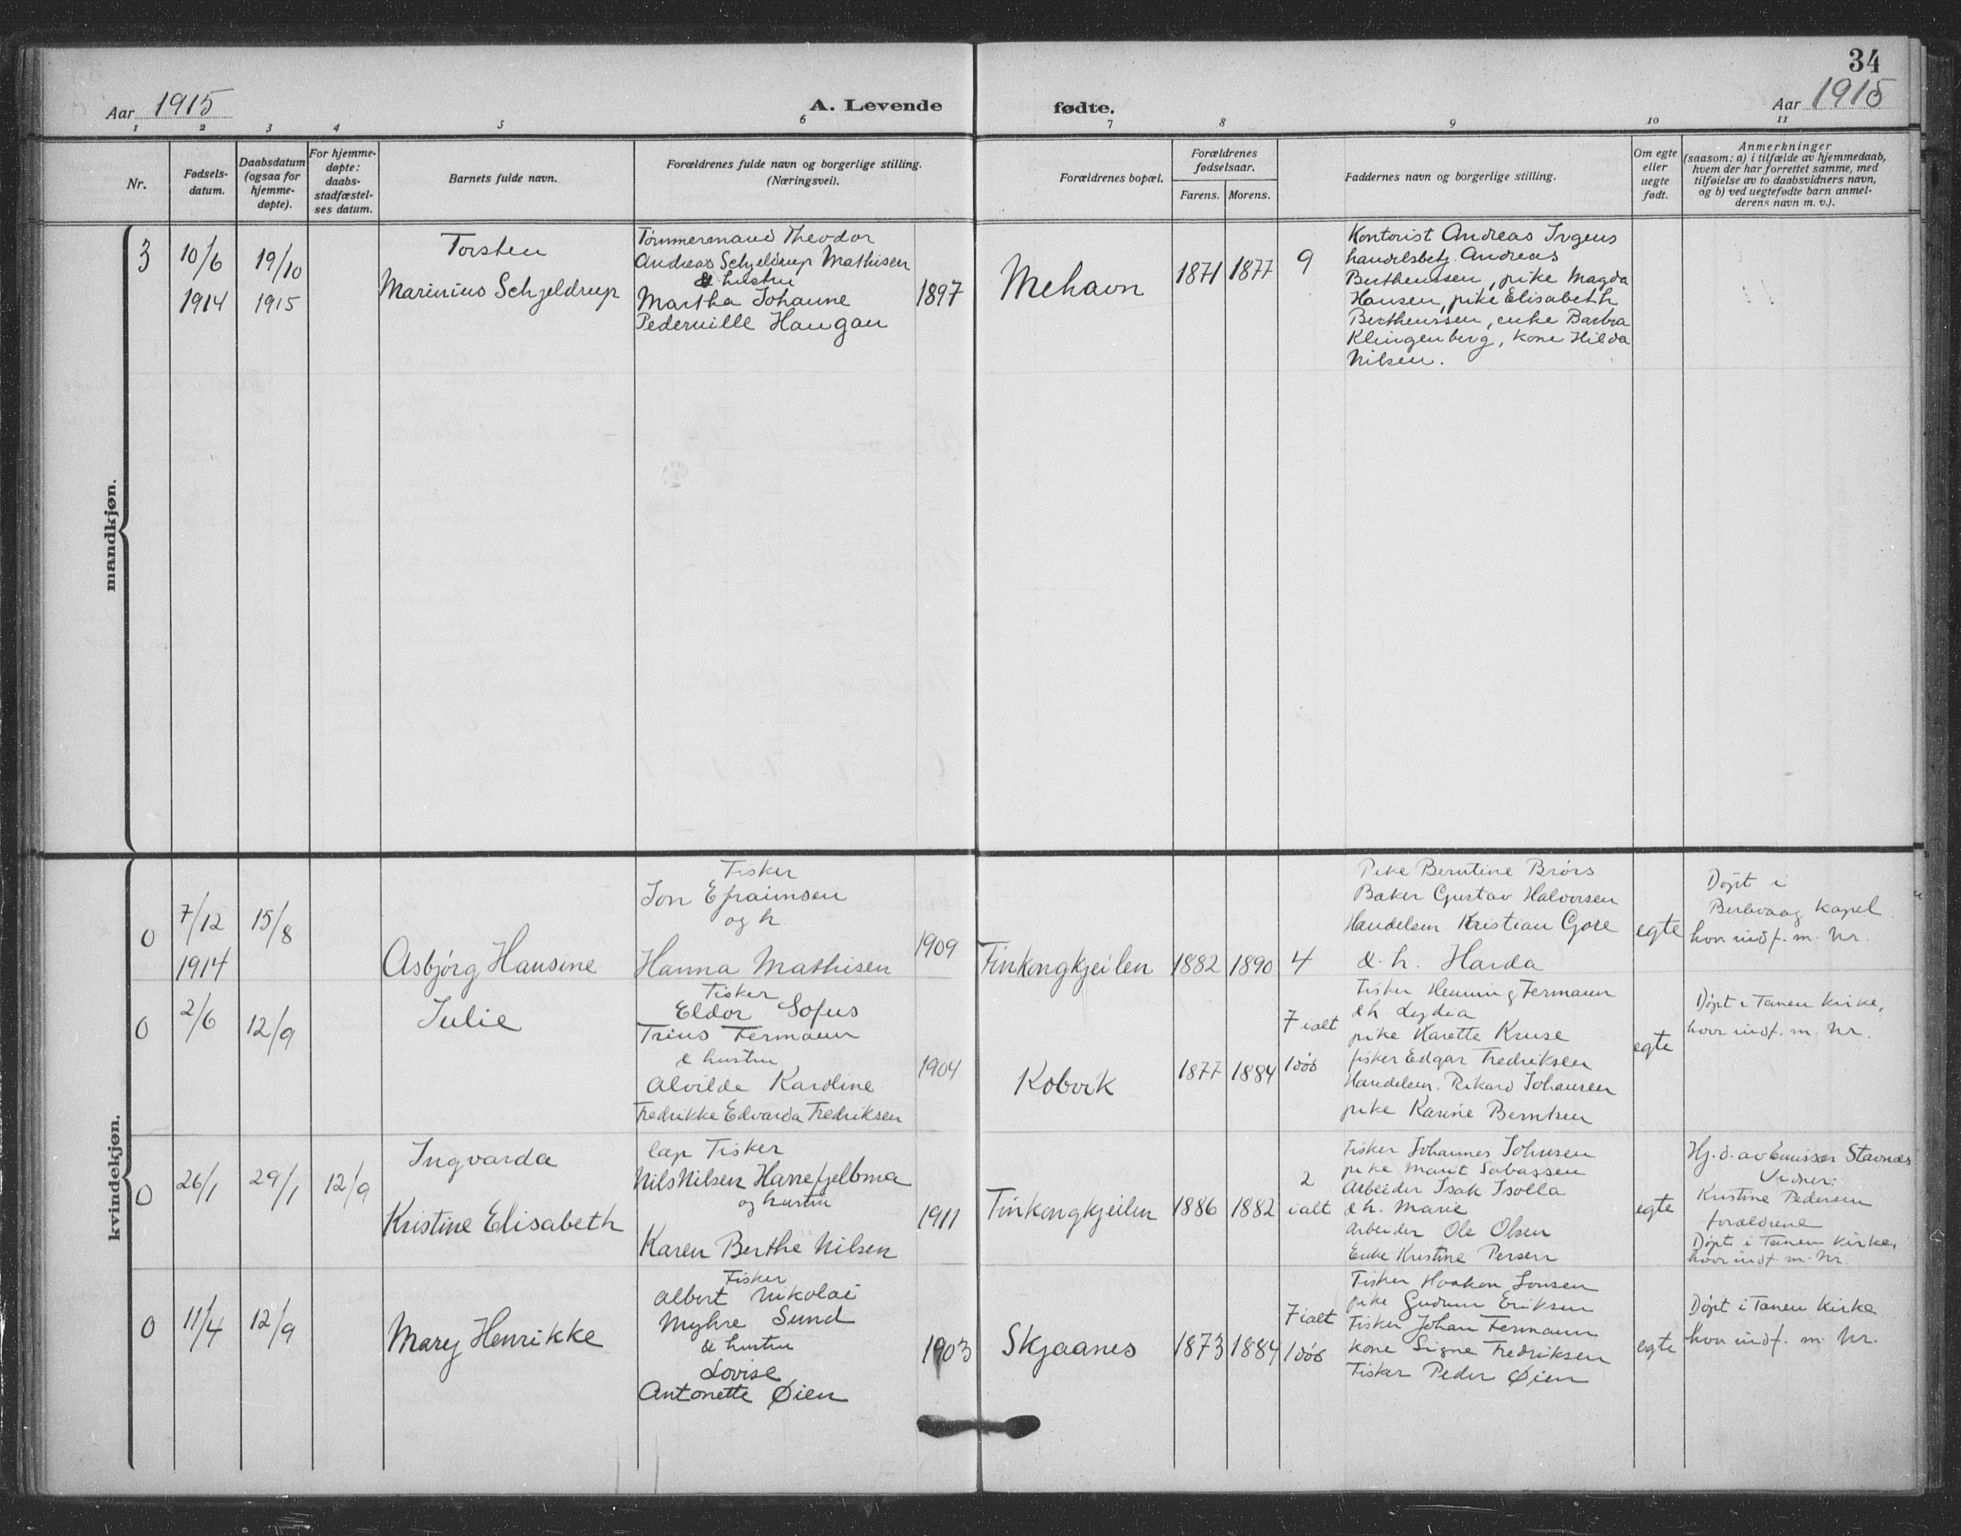 34
Aar 1915
A. Levende
fødte.
Aar 1915
1 2 3 4 5 6 7 8 9 10 11
Nr.
Fødsels-
datum.
Daabsdatum
(ogsaa for
hjemme-
døpte).
For hjemme-
døpte:
daabs-
stadfæstel-
ses datum.
Barnets fulde navn.
Forældrenes fulde navn og borgerlige stilling.
(Næringsvei).
Forældrenes bopæl.
Forældrenes
fødselsaar.
Farens. Morens.
Faddernes navn og borgerlige stilling.
Om egte
eller
uegte
født.
Anmerkninger
(saasom: a) i tilfælde av hjemmedaab,
hvem der har forrettet samme, med
tilføielse av to daabsvidners navn,
og b) ved uegtefødte barn anmel-
derens navn m. v.).
mandkjøn.
3
10/6
1914
19/10
1915
Torsten
Marinius Schjeldrup
Tømmermand Theodor
Andreas Schjeldrup Mathisen
& hustru
Martha Johanne
Pedernille Haugan
1897
Mehavn
1871
1877
9
Kontorist Andreas Irgens
handelsbetj. Andreas
Bertheussen, pike Magda
Hansen, pike Elisabeth
Bertheussen, enke Barbra
Klingenberg, kone Hilda
Nilsen.
kvindekjøn.
0
7/12
1914
15/8
Asbjørg Hansine
Fisker
Jon Efraimsen
og h.
Hanna Mathisen
1909
Finkongkjeilen
1882
1890
4
Pike Berntine Brørs
Baker Gustav Halvorsen
Handelsm Kristian Gøre
& h. Harda
egte
Døpt i
Berlevaag Kapel
hvor indf. m. Nr.
0
2/6
12/9
Julie
Fisker
Eldor Sofus
Trius Fermann
& hustru
Alvilde Karoline
Fredrikke Edvarda Fredriksen
1904
Kobvik
1877
1884
7 ialt
1 død
Fisker Henning Fermann
& h. Lydia
pike Karette Kruse
fisker Edgar Fredriksen
Handelsm. Rikard Johansen
pike Karine Berntsen
egte
Døpt i Tanen Kirke,
hvor indf. m. Nr.
0
26/1
29/1
12/9
Ingvarda
Kristine Elisabeth
lap Fisker
Nils Nilsen Harrefjelbma
og hustru
Karen Berthe Nilsen
1911
Finkongkjeilen
1886
1882
2
ialt
Fisker Johannes Johnsen
pike Marit Sabassen
Arbeider Isak Isolla
& h. Marie
Arbeider Ole Olsen
Enke Kristine Persen
egte
Hj. d. av Emissær Stavnæs
Vidner:
Kristine Pedersen
forældrene
Døpt i Tanen Kirke,
hvor indf. m. Nr.
0
11/4
12/9
Mary Henrikke
Fisker
Albert Nikolai
Myhre Sund
& hustru
Lovise
Antonette Øien
1903
Skjaanes
1873
1884
7 ialt
1 død
Fisker Haakon Jonsen
pike Gudrun Eriksen
Fisker Johan Fermann
Kone Signe Fredriksen
Fisker Peder Øien
egte
Døpt i Tanen Kirke
hvor indf. m. Nr.